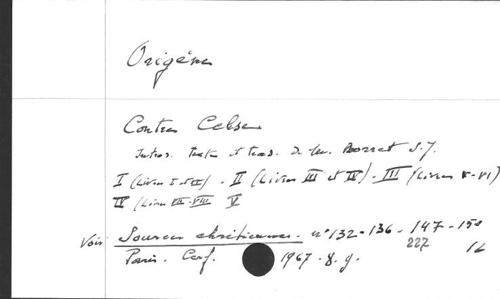 Origène
Contre Celse
Introd. texte et trad. de M. Borret S.J.
I (Livres I et II) - II (Livres III et IV) - III (Livres V-VI)
IV (Livres VII-VIII V
Voir Sources chrétiennes. n° 132-136-147-150
227
Paris. Cerf. 1967-8.g.